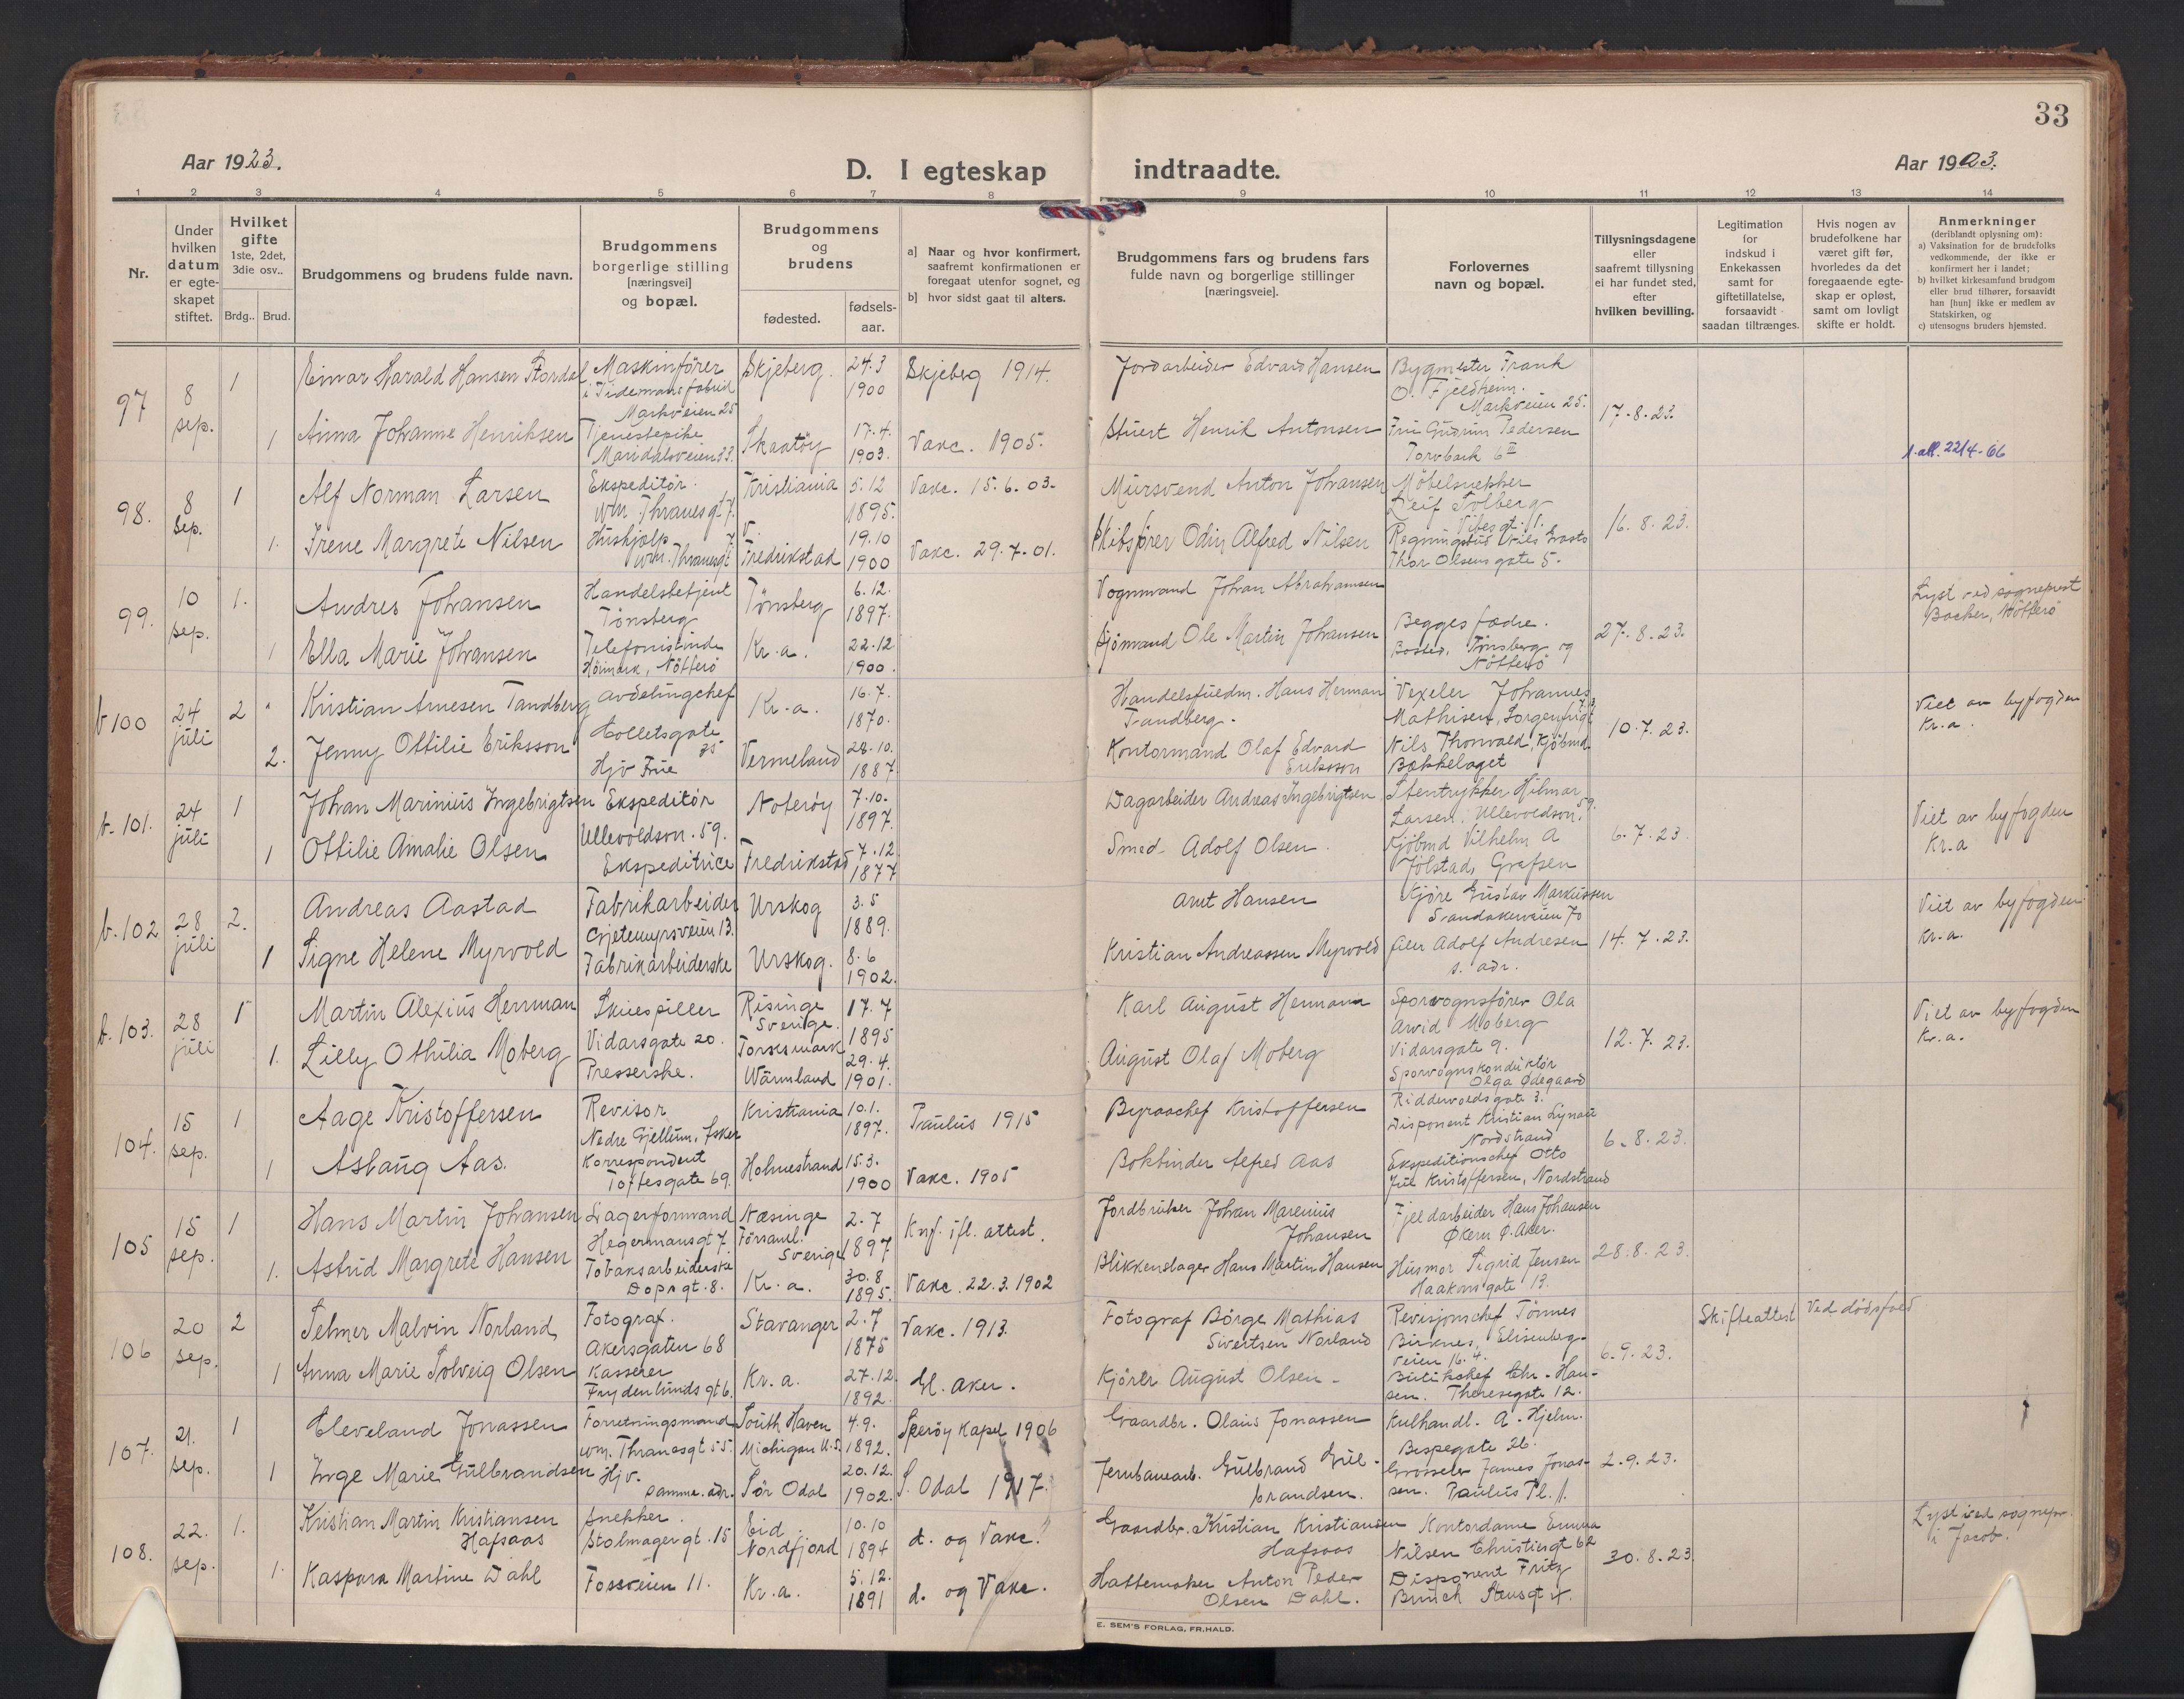 33
Aar 1923.
D. I egteskap indtraadte.
Aar 1923.
1 2 3 4 5 6 7 8 9 10 11 12 13 14
Nr.
Under
hvilken
datum
er egte-
skapet
stiftet.
Hvilket
gifte
1ste, 2det,
3die osv..
Brdg.. Brud.
Brudgommens og brudens fulde navn.
Brudgommens
borgerlige stilling
[næringsvei]
og bopæl.
Brudgommens
og
brudens
fødested.
fødsels-
aar.
a] Naar og hvor konfirmert,
saafremt konfirmationen er
foregaat utenfor sognet, og
b] hvor sidst gaat til alters.
Brudgommens fars og brudens fars
fulde navn og borgerlige stillinger
[næringsveie].
Forlovernes
navn og bopæl.
Tillysningsdagene
eller
saafremt tillysning
ei har fundet sted,
efter
hvilken bevilling.
Legitimation
for
indskud i
Enkekassen
samt for
giftetillatelse,
forsaavidt
saadan tiltrænges.
Hvis nogen av
brudefolkene har
været gift før,
hvorledes da det
foregaaende egte-
skap er opløst,
samt om lovligt
skifte er holdt.
Anmerkninger
(deriblandt oplysning om):
a) Vaksination for de brudefolks
vedkommende, der ikke er
konfirmert her i landet;
b) hvilket kirkesamfund brudgom
eller brud tilhører, forsaavidt
han [hun] ikke er medlem av
Statskirken, og
c) utensogns bruders hjemsted.
97 8 sep. 1 Einar Harald Hansen Stordal Maskinfører i Tidemans fabrik Markveien 25 Skjeberg. 24.3 1900 Skjeberg 1914. Jordarbeider Edvard Hansen Bygmester Frank O. Fjeldheim. Markveien 25. 17.8.23.
1 Anna Johanne Henriksen Tjenestepike Maridalsveien 33. Skaatøy 17.4. 1903. Vakc. 1905. Stuert Henrik Antonsen Fru Gudrun Pedersen Torvback 6 II 1.all. 22/4-66
98. 8 Sep. 1 Alf Norman Larsen Ekspeditør. Wm. Thranesgt 7. Kristiania 5.12 1895. Vakc. 15.6.03. Mursvend Anton Johansen Møbelsnekker Leif Solberg Vibesgt. 11. 16.8.23.
1. Irene Margrete Nilsen Hushjælp Wm. Thranesgt 7 Fredrikstad 19.10 1900 Vakc. 29.7.01. Skibsfører Odin Alfred Nilsen Thor Olsens gate 5.
99. 10 sep. 1. Andres Johansen Handelsbetjent Tønsberg Tønsberg 6.12. 1897. Vognmand Johan Abrahamsen Begges fædre. Bosted. Tønsberg og Nøtterø 27.8.23. Lyst ved sogneprest Backer, Nøtterø
1 Ella Marie Johansen Telefonistinde Nøtterø Kr.a. 22.12. 1900. Sjømand Ole Martin Johansen
b 100 24 juli 2 Kristian Arnesen Tandberg avdelingchef Colletsgate 35 Kr.a. 16.7. 1870. Handelsfuldm. Hans Herman Tandberg. Vexeler Johannes Mathisen, Sorgenfrigt 10.7.23. Viet av byfogden Kr.a.
2. Jenny Ottilie Eriksson Hjv Frue Vermeland 28.10. 1887. Kontormand Olaf Edvard Eriksson Nils Thorvald, Kjøbmd Bækkelaget
b. 101. 24 juli 1 Johan Marinius Ingebrigtsen Ekspeditør Ullevoldsvn. 59. Noterøy 7.10. 1897. Dagarbeider Andreas Ingebrigtsen Stentrykker Hilmar Larsen. Ullevoldsvn. 59. 6.7.23. Viet av byfogden Kr.a
1 Ottilie Amalie Olsen Ekspeditrice Fredrikstad 7.12 1877 Smed Adolf Olsen. Kjøbmd Vilhelm A Jølstad, Grefsen
b. 102 28 juli 2. Andreas Aastad Fabrikarbeider Gjetemyrsveien 13. Urskog 3.5 1889. Arnt Hansen Kjøre Gustav Markussen Sandakerveien 70 14.7.23. Viet av byfogden Kr.a.
1 Signe Helene Myrvold Fabrikarbeiderske Urskog. 8.6 1902. Kristian Andreassen Myrvold Adolf Andresen s. adr.
b. 103. 28 juli 1 Martin Alexius Herrman Skuespiller Vidarsgate 20. Risinge Sverige. 17.7 1895 Karl August Hermann Sporvognsfører Ola Arvid Moberg Vidarsgate 9. 12.7.23. Viet av byfogden Kr.a.
1. Lilly Othilia Moberg Presserske. Torsksmark Wärmland 29.4. 1901. August Olaf Moberg Sporvognskonduktør Olga Ødegaard
104. 15 sep. 1 Aage Kristoffersen Revisor Nedre Gjellum, Asker Kristiania 10.1. 1897. Paulus 1915 Byraachef Kristoffersen Riddervoldsgate 3. Disponent Kristian Lynau Nordstrand 6.8.23.
1 Aslaug Aas. Korrespondent Toftesgate 69. Holmestrand 15.3. 1900 Vakc. 1905 Bokbinder Alfred Aas Ekspeditionschef Otto Juul Kristoffersen, Nordstrand
105 15 sep. 1 Hans Martin Johansen Lagerformand Hegermansgt 7. Næsinge Församl. Sverige 2.7 1897 Knf. ifl. attest. Jordbruker Johan Marenius Johansen Fjeldarbeider Hans Johansen Økern Ø. Aker. 28.8.23.
1. Astrid Margrete Hansen Tobaksarbeiderske Dopsgt. 8. Kr.a. 30.8 1895. Vakc. 22.3.1902 Blikkenslager Hans Martin Hansen Husmor Sigrid Jensen Haakonsgate 13.
106 20 sep. 2 Selmer Malvin Norland Fotograf. Akersgaten 68 Stavanger 2.7 1875 Vakc. 1913. Fotograf Børge Mathias Sivertsen Norland Revisjonschef Tønnes Birknes, Elisenberg- veien 16.4. 6.9.23. Skifteattest Ved dødsfald
1 Anna Marie Solveig Olsen Kasserer Frydenlunds gt 6. Kr.a. 27.12. 1892. Gl. Aker. Kjører August Olsen Butikchef Chr. Han- sen. Theresegate 12.
107. 21. sep. 1 Cleveland Jonassen Forretningsmand Wm. Thranesgt 55. South Haven Michigan U.S. 4.9. 1892. Sperøy Kapel 1906 Gaardbr. Olaus Jonassen Kulhandl. A. Hjelm. Bispegate 26. 2.9.23.
1 Inge Marie Gulbrandsen Hjv. samme adr. Sør Odal 20.12. 1902. S. Odal 1917. Jernbanearb. Gulbrand Gul- brandsen. Grosseler James Jonas- sen. Paulus Pl. 1.
108. 22. sep. 1. Kristian Martin Kristiansen Hafsaas Snekker. Stolmagergt. 15 Eid Nordfjord 10.10 1894 d. og Vakc. Gaardbr. Kristian Kristiansen Hafsaas Kontordame Emma Nilsen Christiesgt 62 30.8.23. Lyst ved sognepr. i Jacob.
1. Kaspara Martine Dahl Fossveien 11. Kr.a. 5.12. 1891 d. og Vakc. Hattemaker Anton Peder Olsen Dahl. Disponent Fritz Bruch
E. SEM'S FORLAG, FR.HALD.